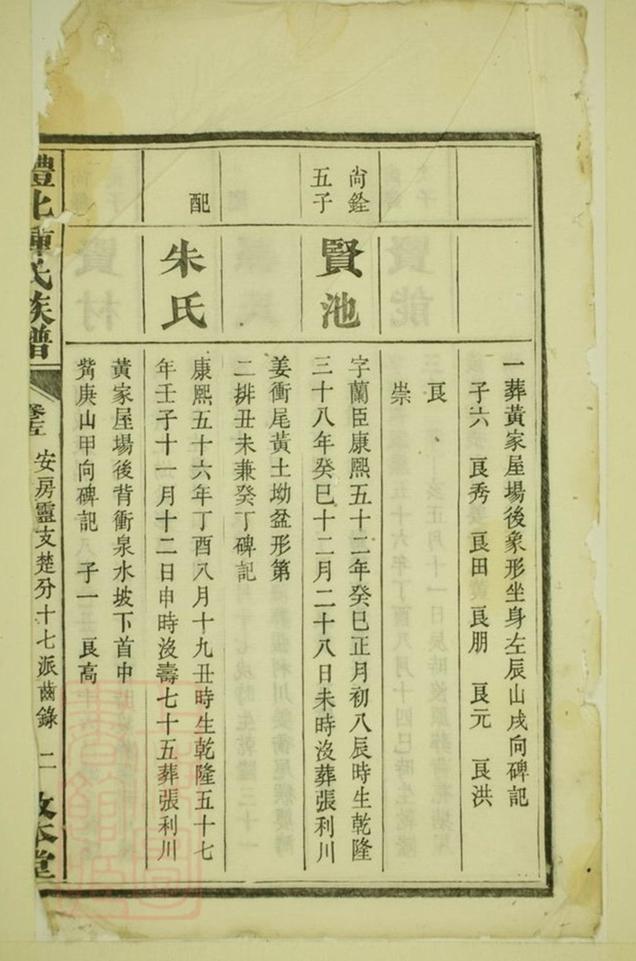 一葬黃家屋場後象形坐身左辰山戌向碑記
子六 艮秀 艮田 艮朋 艮元 艮洪
艮
崇
尙銓
五子
賢池
字蘭臣康熙五十二年癸巳正月初八辰時生乾隆
三十八年癸巳十二月二十八日未時沒葬張利川
姜衝尾黃土坳盆形第
二排丑未兼癸丁碑記
配
朱氏
康熙五十六年丁酉八月十九丑時生乾隆五十七
年壬子十一月十二日申時沒壽七十五葬張利川
黃家屋場後背衝泉水坡下首中
觜庚山甲向碑記 子一 艮高
氏族譜
安房靈支楚分十七派齒錄 二
堂